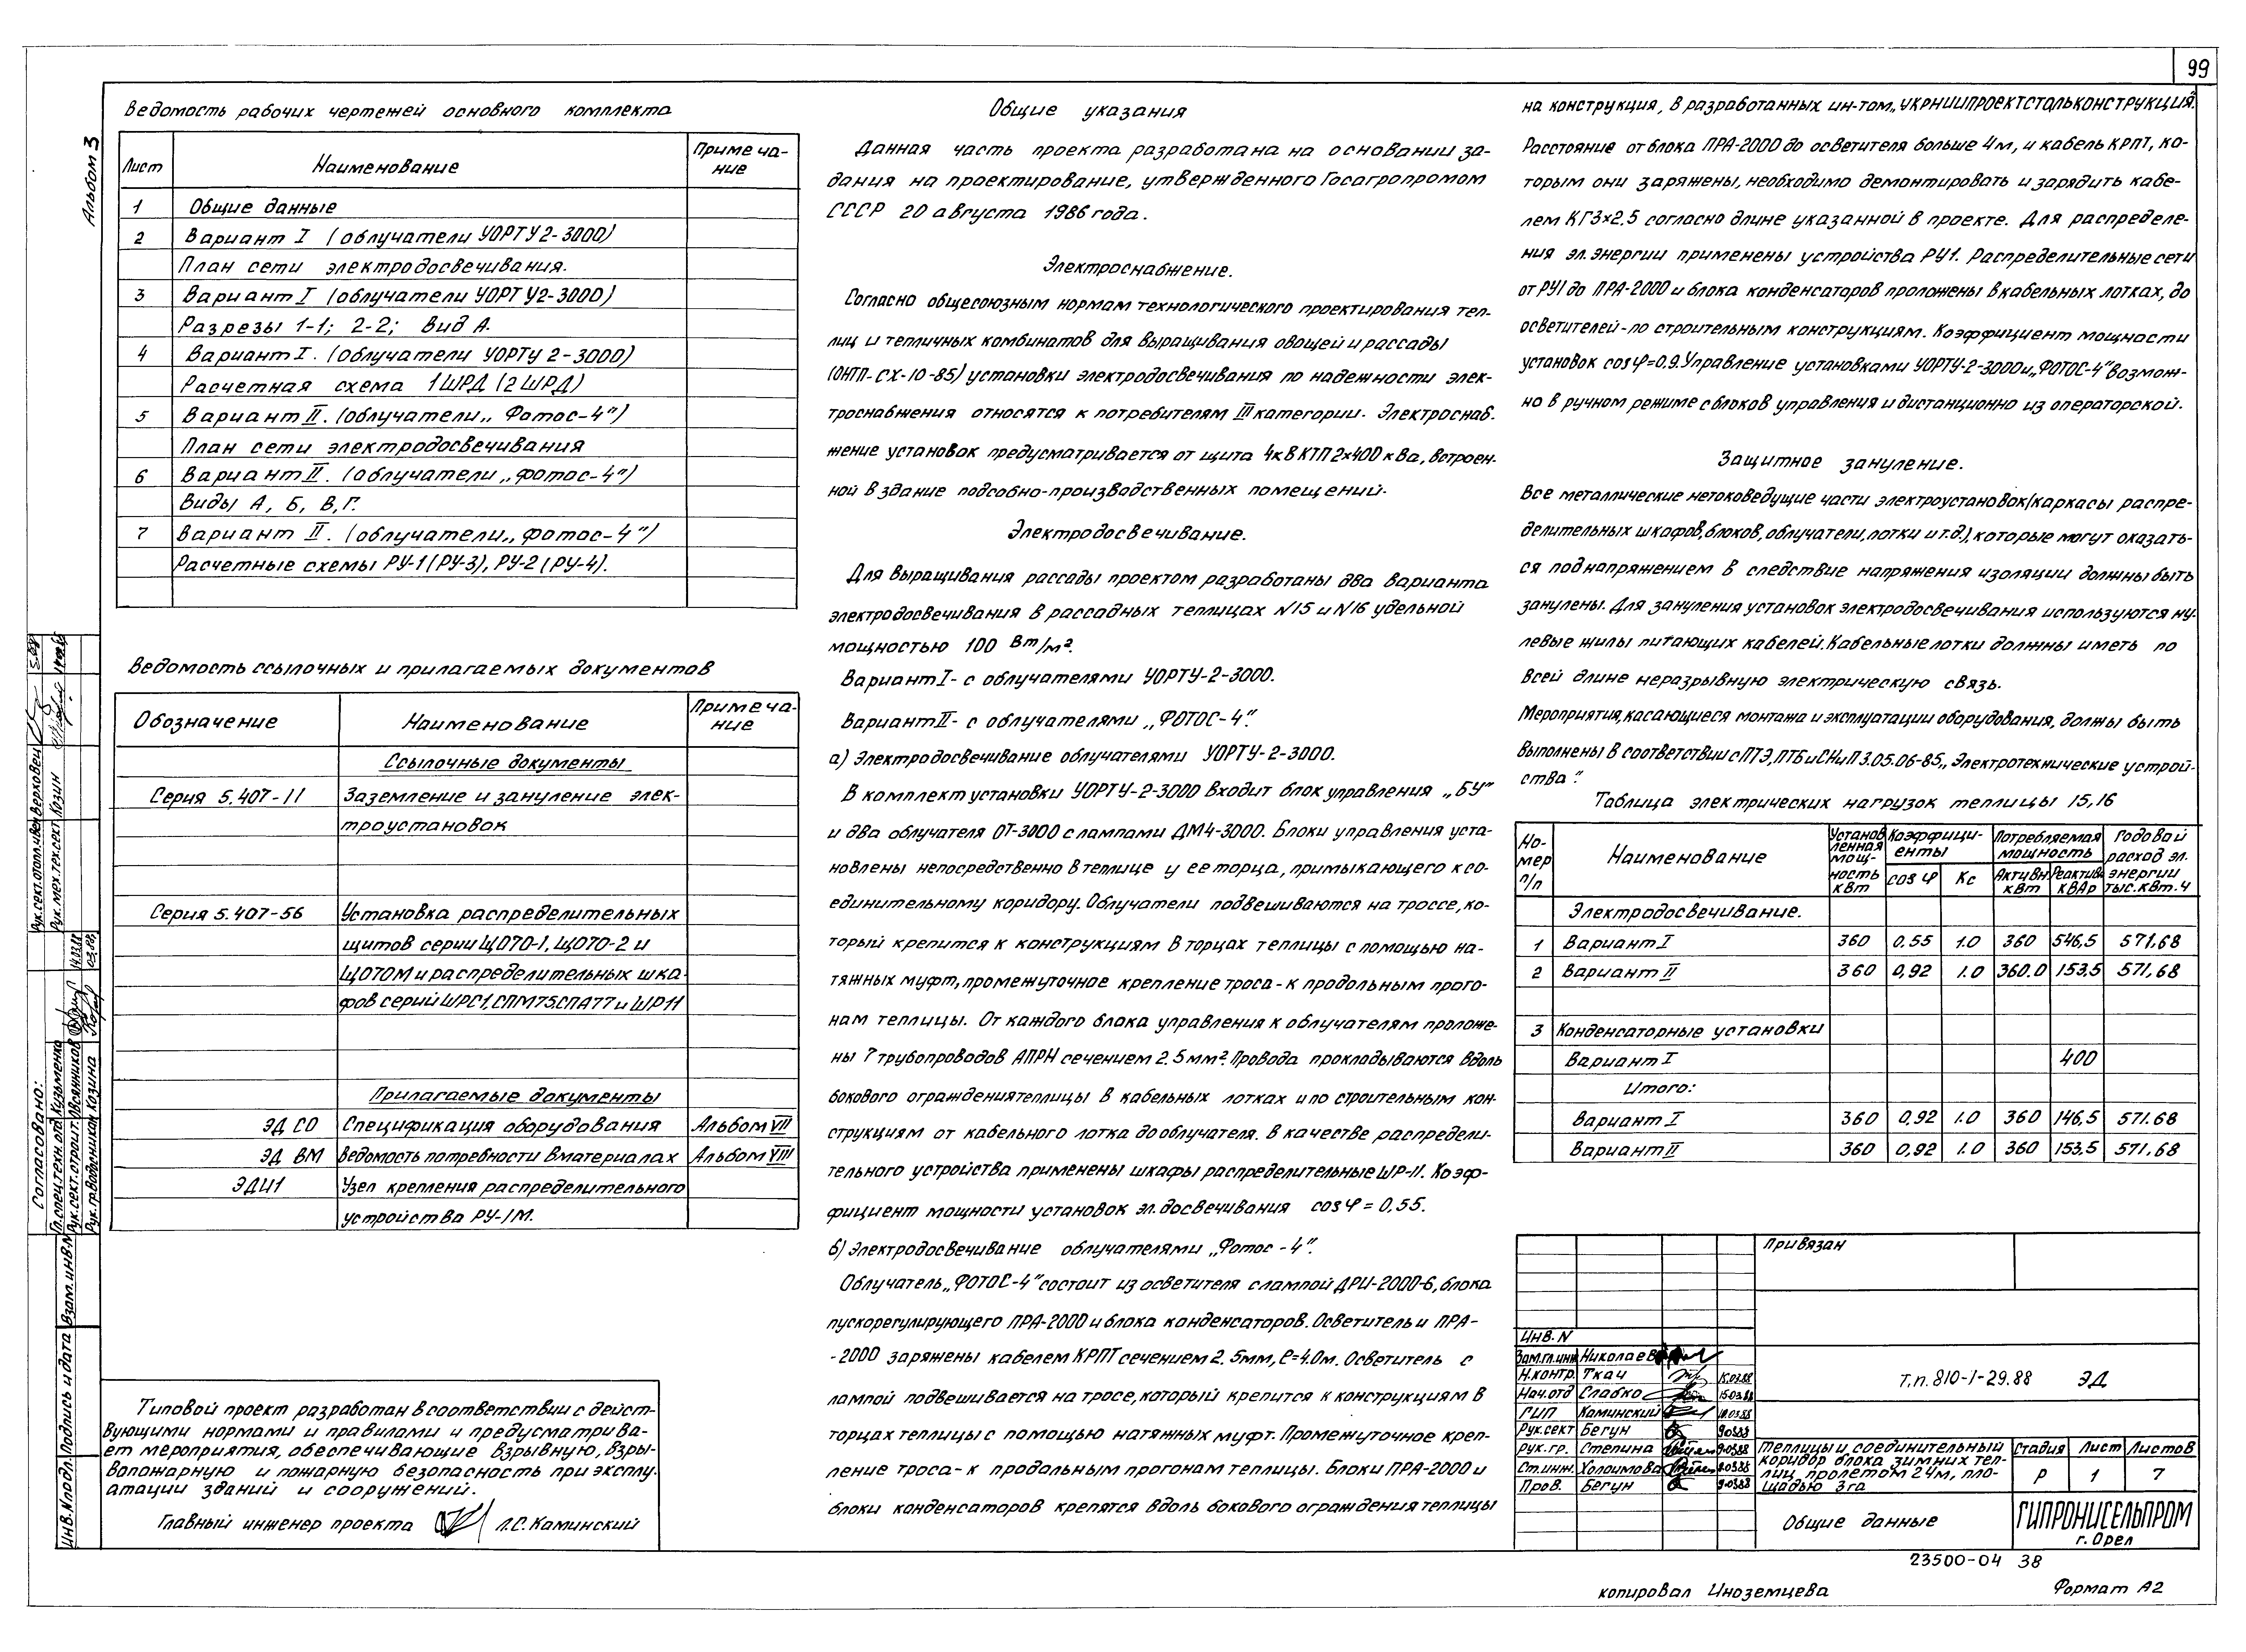 99
Альбом 3
Ведомость рабочих чертежей основного комплекта
Лист Наименование Примеча-
ние
1 Общие данные
2 Вариант I (облучатели УОРТУ2-3000)
План сети электродосвечивания.
3 Вариант I (облучатели УОРТУ2-3000)
Разрезы 1-1; 2-2; вид А.
4 Вариант I. (облучатели УОРТУ 2-3000)
Расчетная схема 1ШРД (2ШРД)
5 Вариант II. (облучатели „Фотос-4")
План сети электродосвечивания
6 Вариант II. (облучатели „Фотос-4")
Виды А, Б, В, Г.
7 Вариант II. (облучатели „Фотос-4")
Расчетные схемы РУ-1(РУ-3), РУ-2 (РУ-4).
Ведомость ссылочных и прилагаемых документов
Обозначение Наименование Примеча-
ние
Ссылочные документы
Серия 5.407-11 Заземление и зануление элек-
троустановок
Серия 5.407-56 Установка распределительных
щитов серии ЩО70-1, ЩО70-2 и
ЩО70М и распределительных шка-
фов серий ШРС1,СПМ75,СПА77 и ШР11
Прилагаемые документы
ЭД СО Спецификация оборудования Альбом VII
ЭД ВМ Ведомость потребности в материалах Альбом VIII
ЭДИ1 Узел крепления распределительного
устройства РУ-1М.
Типовой проект разработан в соответствии с дейст-
вующими нормами и правилами и предусматрива-
ет мероприятия, обеспечивающие взрывную, взры-
вопожарную и пожарную безопасность при эксплу-
атации зданий и сооружений.
Главный инженер проекта Л.С. Каминский
Общие указания
Данная часть проекта разработана на основании за-
дания на проектирование, утвержденного Госагропромом
СССР 20 августа 1986 года.
Электроснабжение.
Согласно общесоюзным нормам технологического проектирования теп-
лиц и тепличных комбинатов для выращивания овощей и рассады
(ОНТП-СХ-10-85) установки электродосвечивания по надежности элек-
троснабжения относятся к потребителям III категории. Электроснаб-
жение установок предусматривается от щита 4кВ КТП 2×400 кВа, встроен-
ной в здание подсобно-производственных помещений.
Электродосвечивание.
Для выращивания рассады проектом разработаны два варианта
электродосвечивания в рассадных теплицах N15 и N16 удельной
мощностью 100 Вт/м².
Вариант I- с облучателями УОРТУ-2-3000.
Вариант II- с облучателями „ФОТОС-4".
а) Электродосвечивание облучателями УОРТУ-2-3000.
В комплект установки УОРТУ-2-3000 входит блок управления „БУ"
и два облучателя ОТ-3000 с лампами ДМ4-3000. Блоки управления уста-
новлены непосредственно в теплице у ее торца, примыкающего к со-
единительному коридору. Облучатели подвешиваются на троссе, ко-
торый крепится к конструкциям в торцах теплицы с помощью на-
тяжных муфт, промежуточное крепление троса-к продольным прого-
нам теплицы. От каждого блока управления к облучателям проложе-
ны 7 трубопроводов АПРН сечением 2.5 мм². Провода прокладываются вдоль
бокового ограждения теплицы в кабельных лотках и по строительным кон-
струкциям от кабельного лотка до облучателя. В качестве распредели-
тельного устройства применены шкафы распределительные ШР-11. Коэф-
фициент мощности установок эл. досвечивания cos φ = 0,55.
б) Электродосвечивание облучателями „Фотос-4".
Облучатель „ФОТОС-4" состоит из осветителя с лампой ДРИ-2000-6, блока
пускорегулирующего ПРА-2000 и блока конденсаторов. Осветитель и ПРА-
-2000 заряжены кабелем КРПТ сечением 2.5мм, ℓ=4.0м. Осветитель с
лампой подвешивается на тросе, который крепится к конструкциям в
торцах теплицы с помощью натяжных муфт. Промежуточное креп-
ление троса-к продольным прогонам теплицы. Блоки ПРА-2000 и
блоки конденсаторов крепятся вдоль бокового ограждения теплицы
на конструкция, в разработанных ин-том „УКРНИИПРОЕКТСТАЛЬКОНСТРУКЦИЯ".
Расстояние от блока ПРА-2000 до осветителя больше 4м, и кабель КРПТ, ко-
торым они заряжены, необходимо демонтировать и зарядить кабе-
лем КГ3×2,5 согласно длине указанной в проекте. Для распределе-
ния эл. энергии применены устройства РУ1. Распределительные сети
от РУ1 до ПРА-2000 и блока конденсаторов проложены в кабельных лотках, до
осветителей-по строительным конструкциям. Коэффициент мощности
установок cos φ=0,9. Управление установками УОРТУ-2-3000 и „ФОТОС-4" возмож-
но в ручном режиме с блоков управления и дистанционно из операторской.
Защитное зануление.
Все металлические нетоковедущие части электроустановок (каркасы распре-
делительных шкафов, блоков, облучатели, лотки и т.д.), которые могут оказать-
ся под напряжением в следствие напряжения изоляции должны быть
занулены. Для зануления установок электродосвечивания используются ну-
левые жилы питающих кабелей. Кабельные лотки должны иметь по
всей длине неразрывную электрическую связь.
Мероприятия, касающиеся монтажа и эксплуатации оборудования, должы быть
выполнены в соответствии с ПТЭ, ПТБ и СНиП 3.05.06-85 „Электротехнические устрой-
ства".
Таблица электрических нагрузок теплицы 15,16
Но-
мер
п/п Наименование Установ
ленная
мощ-
ность
кВт Коэффици-
енты cos φ Кс Потребляемая
мощность Активн
кВт Реактивн
кВАр Годовой
расход эл.
энергии
тыс. кВт. ч
Электродосвечивание.
1 Вариант I 360 0.55 1.0 360 546,5 571,68
2 Вариант II 360 0,92 1.0 360.0 153,5 571,68
3 Конденсаторные установки
Вариант I 400
Итого:
Вариант I 360 0,92 1.0 360 146,5 571.68
Вариант II 360 0,92 1.0 360 153,5 571,68
Привязан
Инв. N
Зам.гл.инж Николаев
Н.контр. Ткач 15.03.88
Нач.отд Слабко 15.03.88
ГИП Каминский 10.03.88
Рук.сект Бегун 9.03.88
Рук.гр. Степина 9.03.88
Ст.инж. Холоимова 9.03.88
Пров. Бегун 9.03.88
т.п. 810-1-29.88 ЭД
Теплицы и соединительный
коридор блока зимних теп-
лиц пролетом 24м, пло-
щадью 3га
Стадия Лист Листов
Р 1 7
Общие данные
ГИПРОНИСЕЛЬПРОМ
г. Орел
23500-04 38
копировал Иноземцева
Формат А2
Согласовано:
Гл.спец.техн.отд. Кузьменко
Рук.сект.строит. Овсянников 14.03.88
Рук.гр. Водоснабж Козина 03.88
Рук.сект.отопл. и вен Верховец
Рук.мех.тех.сект. Козин
Взам. инв N
Подпись и дата
Инв. N подл.